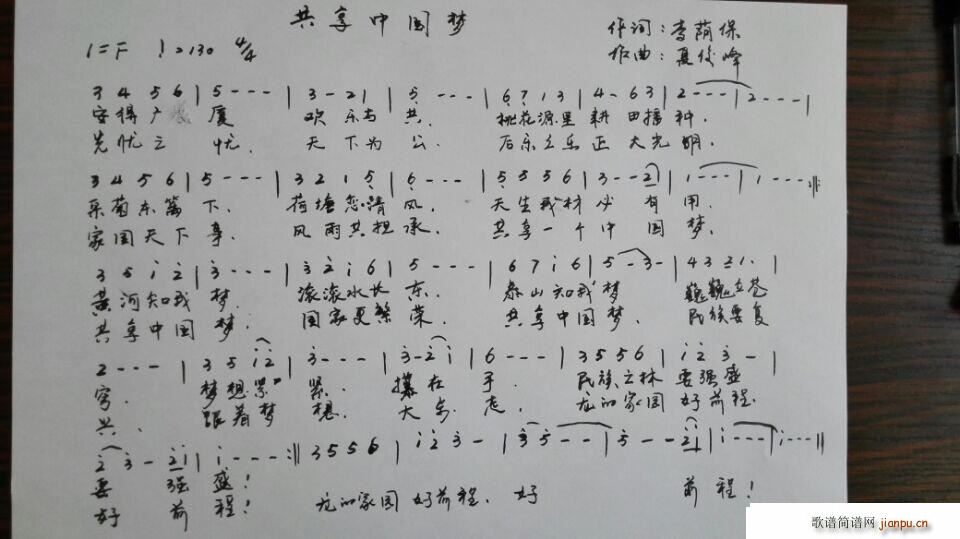 共享中国梦
作词:李荫保
1=F ♩=130 4/4
作曲:夏俊峰
3 4 5 6 | 5 - - - | 3 - 2 1 | 5 - - - | 6 7 1 3 | 4 - 6 3 | 2 - - - | 2 - - - |
安得广厦 欢乐与共. 桃花源里耕田播种.
先忧之忧. 天下为公. 后乐之乐正大光明.
3 4 5 6 | 5 - - - | 3 2 1 5 | 6 - - - | 5 5 5 6 | 3 - - 2 | 1 - - - | 1 - - - :||
采菊东篱下. 荷塘忽清风. 天生我材必有用.
家国天下事. 风雨共担承. 共享一个中国梦.
3 5 i 2 | 3 - - - | 3 2 i 6 | 5 - - - | 6 7 i 6 | 5 - 3 - | 4 3 2 1. |
黄河知我梦. 滚滚水长东. 泰山知我梦 巍巍立苍
共享中国梦. 国家更繁荣. 共享中国梦. 民族要复
2 - - - | 3 5 i 2 | 3 - - - | 3 - 2 i | 6 - - - | 3 5 5 6 | i 2 3 - |
穹. 梦想紧紧. 攥在手. 民族之林要强盛
兴. 跟着梦想. 大步走. 龙的家园好前程.
2 3 - 2 i | i - - - :|| 3 5 5 6 | i 2 3 - | 3 5 - - | 5 - - 2 i | i - - - | i - - - ||
要强盛!
好前程! 龙的家园好前程. 好前程!
歌谱简谱网 jianpu.cn